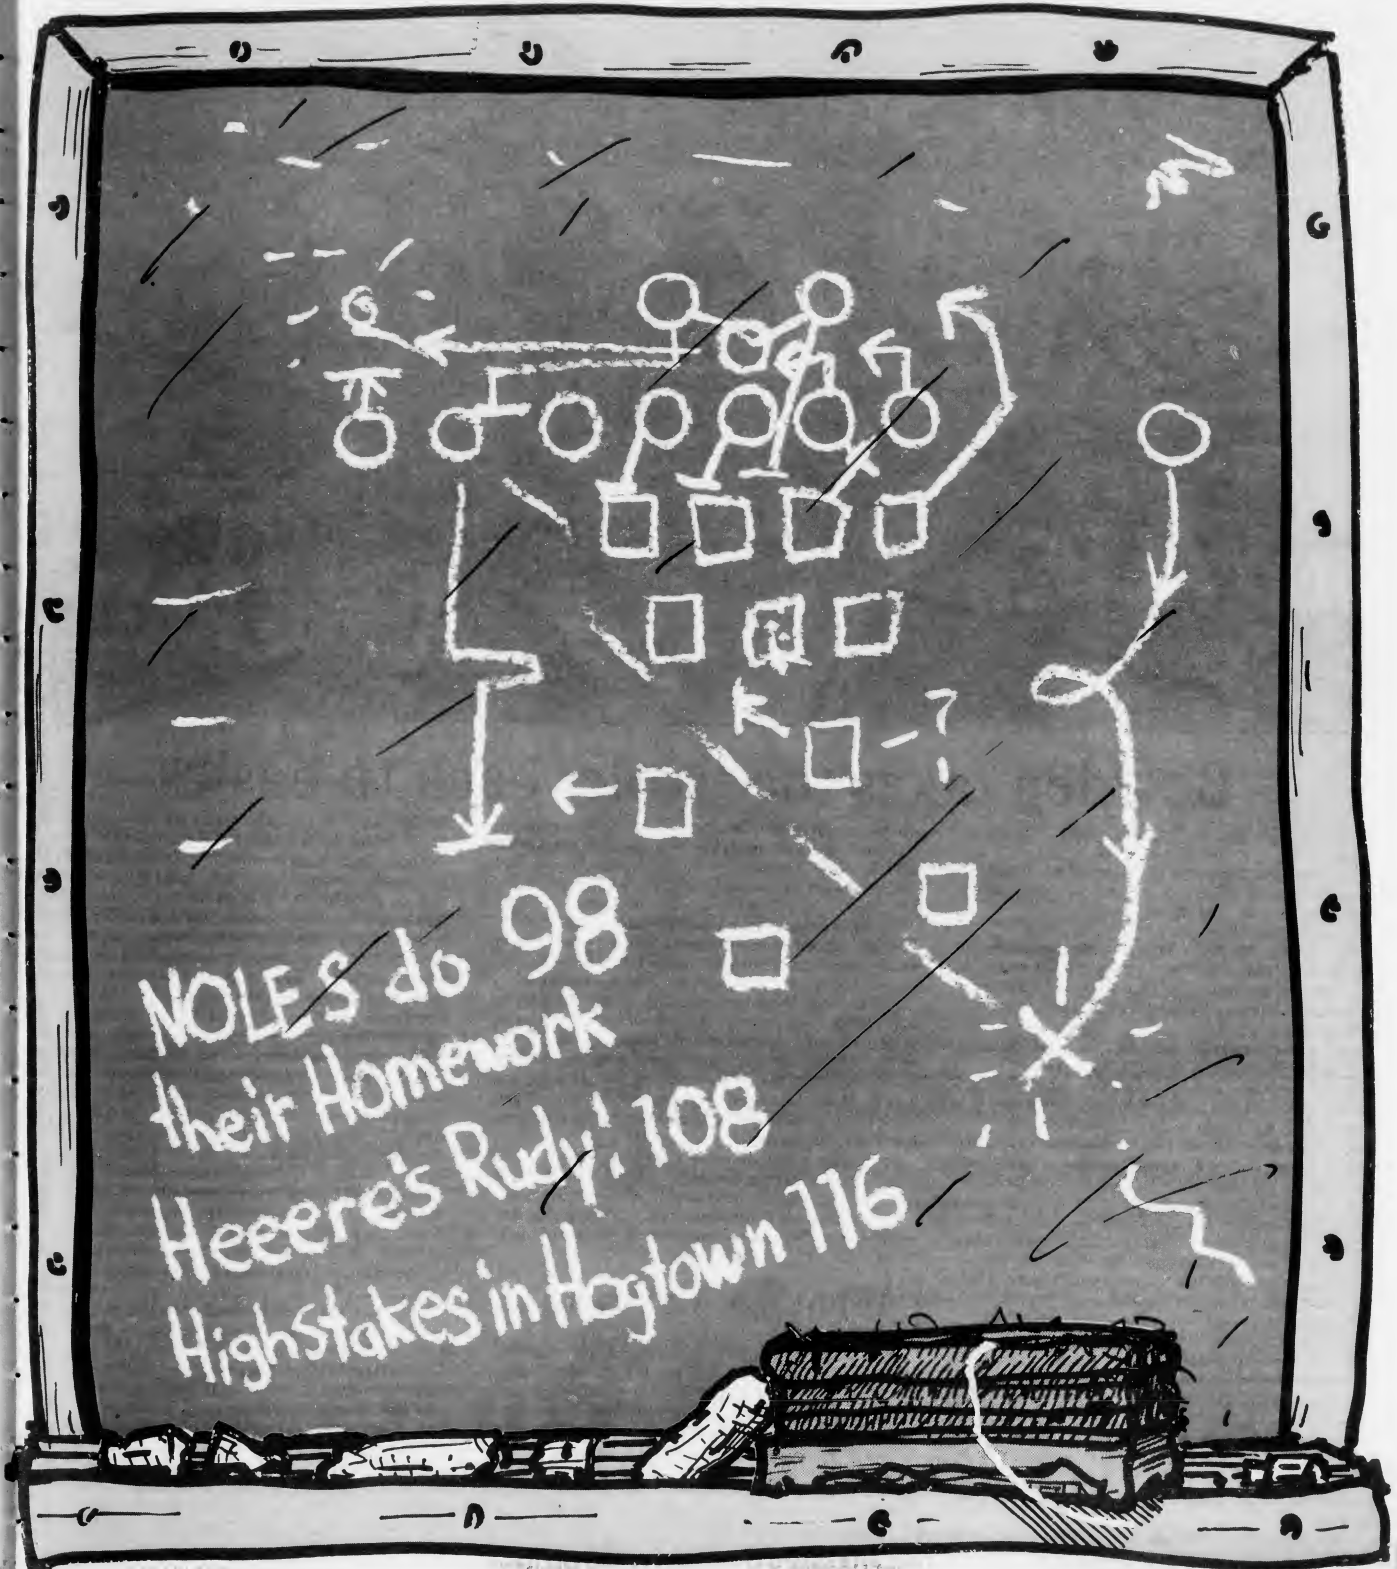 NOLES do 98
their Homework
Heeere's Rudy! 108
Highstakes in Hogtown 116
?